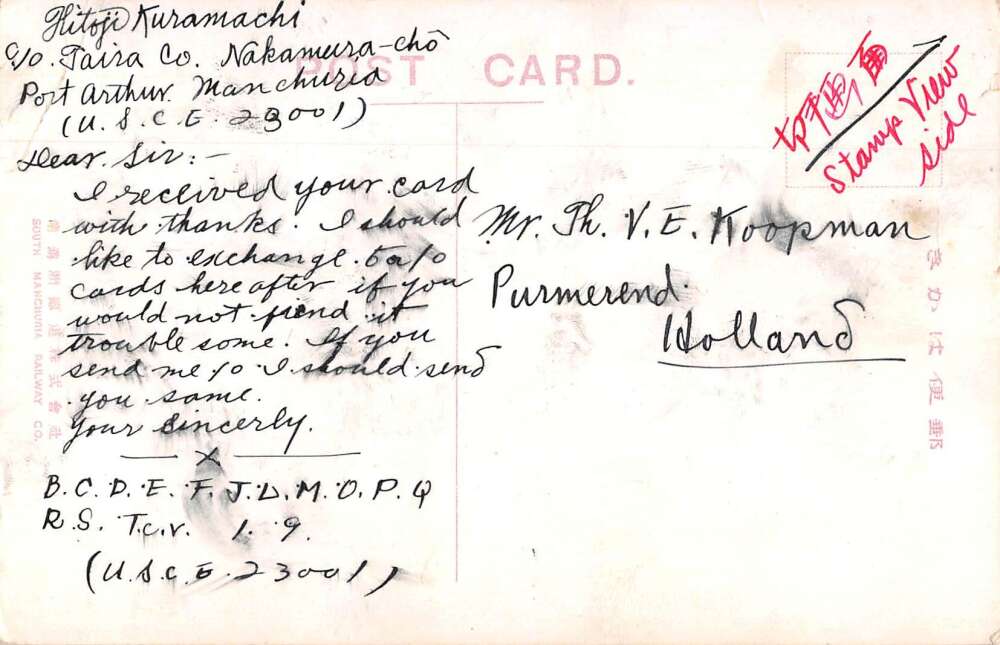 Hitoji Kuramachi
c/o. Taira Co. Nakamura-chō
Port Arthur. Manchuria
(U. S. C. E. 23001)
POST CARD.
切手画面
Stamp View
side
Dear. Sir:-
I received your card
with thanks. I should
like to exchange. 5 a/o
cards hereafter if you
would not fiend it
trouble some. If you
send me 10 I should send
you same.
Your Sincerly.
X
B. C. D. E. F. J. L. M. O. P. Q
R. S. T.C.V. 1. 9.
(U. S. C. E. 23001)
Mr. Th. V. E. Koopman
Purmerend.
Holland
南滿洲鐵道株式會社
SOUTH MANCHURIA RAILWAY CO.
きかは便郵